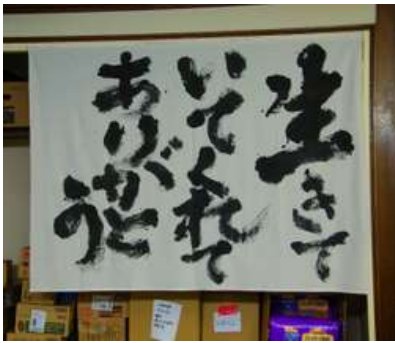 生きて
いてくれて
ありがとう